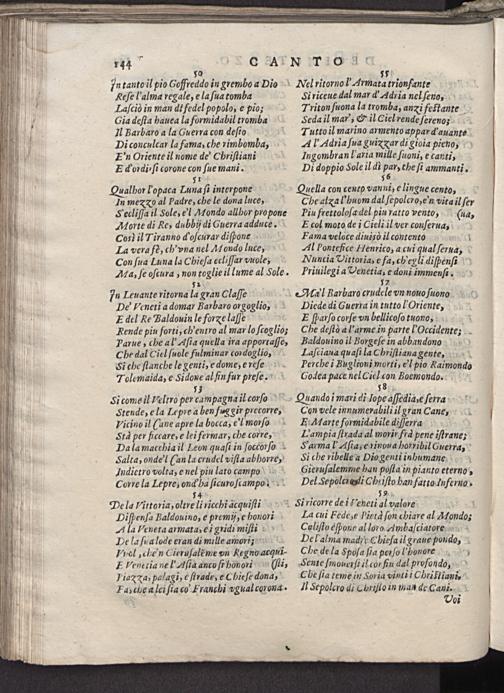 144 CANTO
50
In tanto il pio Goffreddo in grembo a Dio
Rese l'alma regale, e la sua tomba
Lasciò in man di fedel popolo, e pio;
Gia desta hauea la formidabil tromba
Il Barbaro a la Guerra con desio
Di conculcar la fama, che rimbomba,
E'n Oriente il nome de' Christiani
E d'ordir si corone con sue mani.
51
Qualhor l'opaca Luna si interpone
In mezzo al Padre, che le dona luce,
S'eclissa il Sole, e'l Mondo allhor propone
Morte di Re, dubbij di Guerra adduce.
Così il Tiranno d'oscurar dispone
La vera fè, ch'vna nel Mondo luce,
Con sua Luna la Chiesa eclissar vuole,
Ma, se oscura, non toglie il lume al Sole.
52
In Leuante ritorna la gran Classe
De' Veneti a domar Barbaro orgoglio,
E del Re Baldouin le forze lasse
Rende piu forti, ch'entro al mar lo scoglio;
Parue, che al'Asia quella ira apportasse,
Che dal Ciel suole fulminar cordoglio,
Si che stanche le genti, e dome, e rese
Tolemaida, e Sidone al fin sur prese.
53
Si come il Veltro per campagna il corso
Stende, e la Lepre a ben fuggir precorre,
Vicino il Cane apre la bocca, e'l morso
Stà per ficcare, e lei fermar, che corre,
Da la macchia il Leon quasi in soccorso
Salta, onde'l Can la crudel vista abhorre,
Indietro volta, e nel piu lato campo
Corre la Lepre, ond'ha sicuro scampo.
54
De la Vittoria, oltre li ricchi acquisti
Dispensa Baldouino, e premij, e honori
A la Veneta armata, e i gridi misti
De la sua lode eran di mille amori;
Vuol, che'n Cierusalème vn Regno acqui-
E Venetia ne l'Asia anco si honori (sti,
Piazza, palagi, e strade, e Chiese dona,
Fa, che a lei sia co' Franchi vgual corona.
55
Nel ritorno l'Armata trionfante
Si riceue dal mar d'Adria nel seno,
Triton suona la tromba, anzi festante
Seda il mar', & il Ciel rende sereno;
Tutto il marino armento appar d'auante
A l'Adria sua guizzar di gioia pieno,
Ingombran l'aria mille suoni, e canti,
Di doppio Sole il dì par, che si ammanti.
56
Quella con cento vanni, e lingue cento,
Che alza l'huom dal sepolcro, e'n vita il ser
Piu frettolosa del piu ratto vento, (ua,
E col moto de i Cieli il ver conserua,
Fama veloce diuisò il contento
Al Pontefice Henrico, a cui qual serua,
Nuncia Vittoria, e fa, ch'egli dispensi
Priuilegi a Venetia, e doni immensi.
57
Ma'l Barbaro crudele vn nouo suono
Diede di Guerra in tutto l'Oriente,
E sparso corse vn bellicoso tuono,
Che destò a l'arme in parte l'Occidente;
Baldouino il Borgese in abbandono
Lasciaua quasi la Christiana gente,
Perche i Buglioni morti, e'l pio Raimondo
Godea pace nel Ciel con Boemondo.
58
Quando i mari di Iope assedia, e serra
Con vele innumerabili il gran Cane,
E Marte formidabile disserra
L'ampia strada al morir frà pene istrane;
S'arma l'Asia, e rinoua horribil Guerra,
Si che ribelle a Dio genti inhumane
Gierusalemme han posta in pianto eterno,
Del Sepolcro di Christo han fatto Inferno.
59
Si ricorre de i Veneti al valore
La cui Fede, e Pietà son chiare al Mondo;
Calisto espone al loro Ambasciatore
De l'alma madre Chiesa il graue pondo,
Che de la Sposa sia perso l'honore
Sente smouersi il cor fin dal profondo,
Che sia teme in Soria vinti i Christiani.
Il Sepolcro di Christo in man de Cani.
Voi